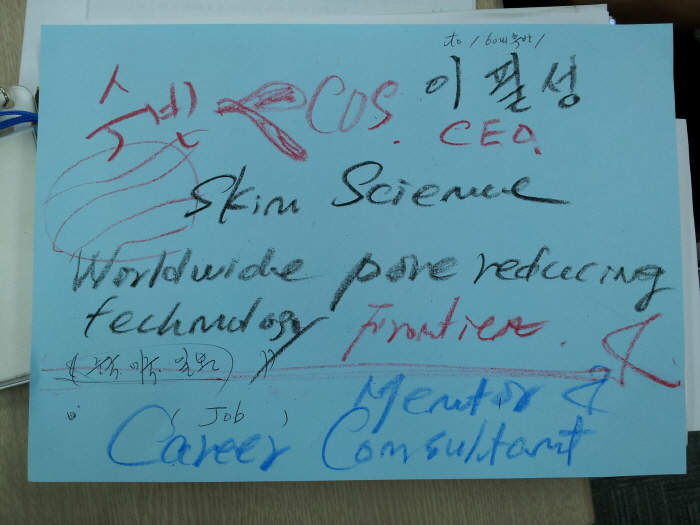 이필성
COS. CEO.
Skin Science
Worldwide pore reducing
technology Frontier.
미주 일본
Mentor &
( Job )
Career Consultant